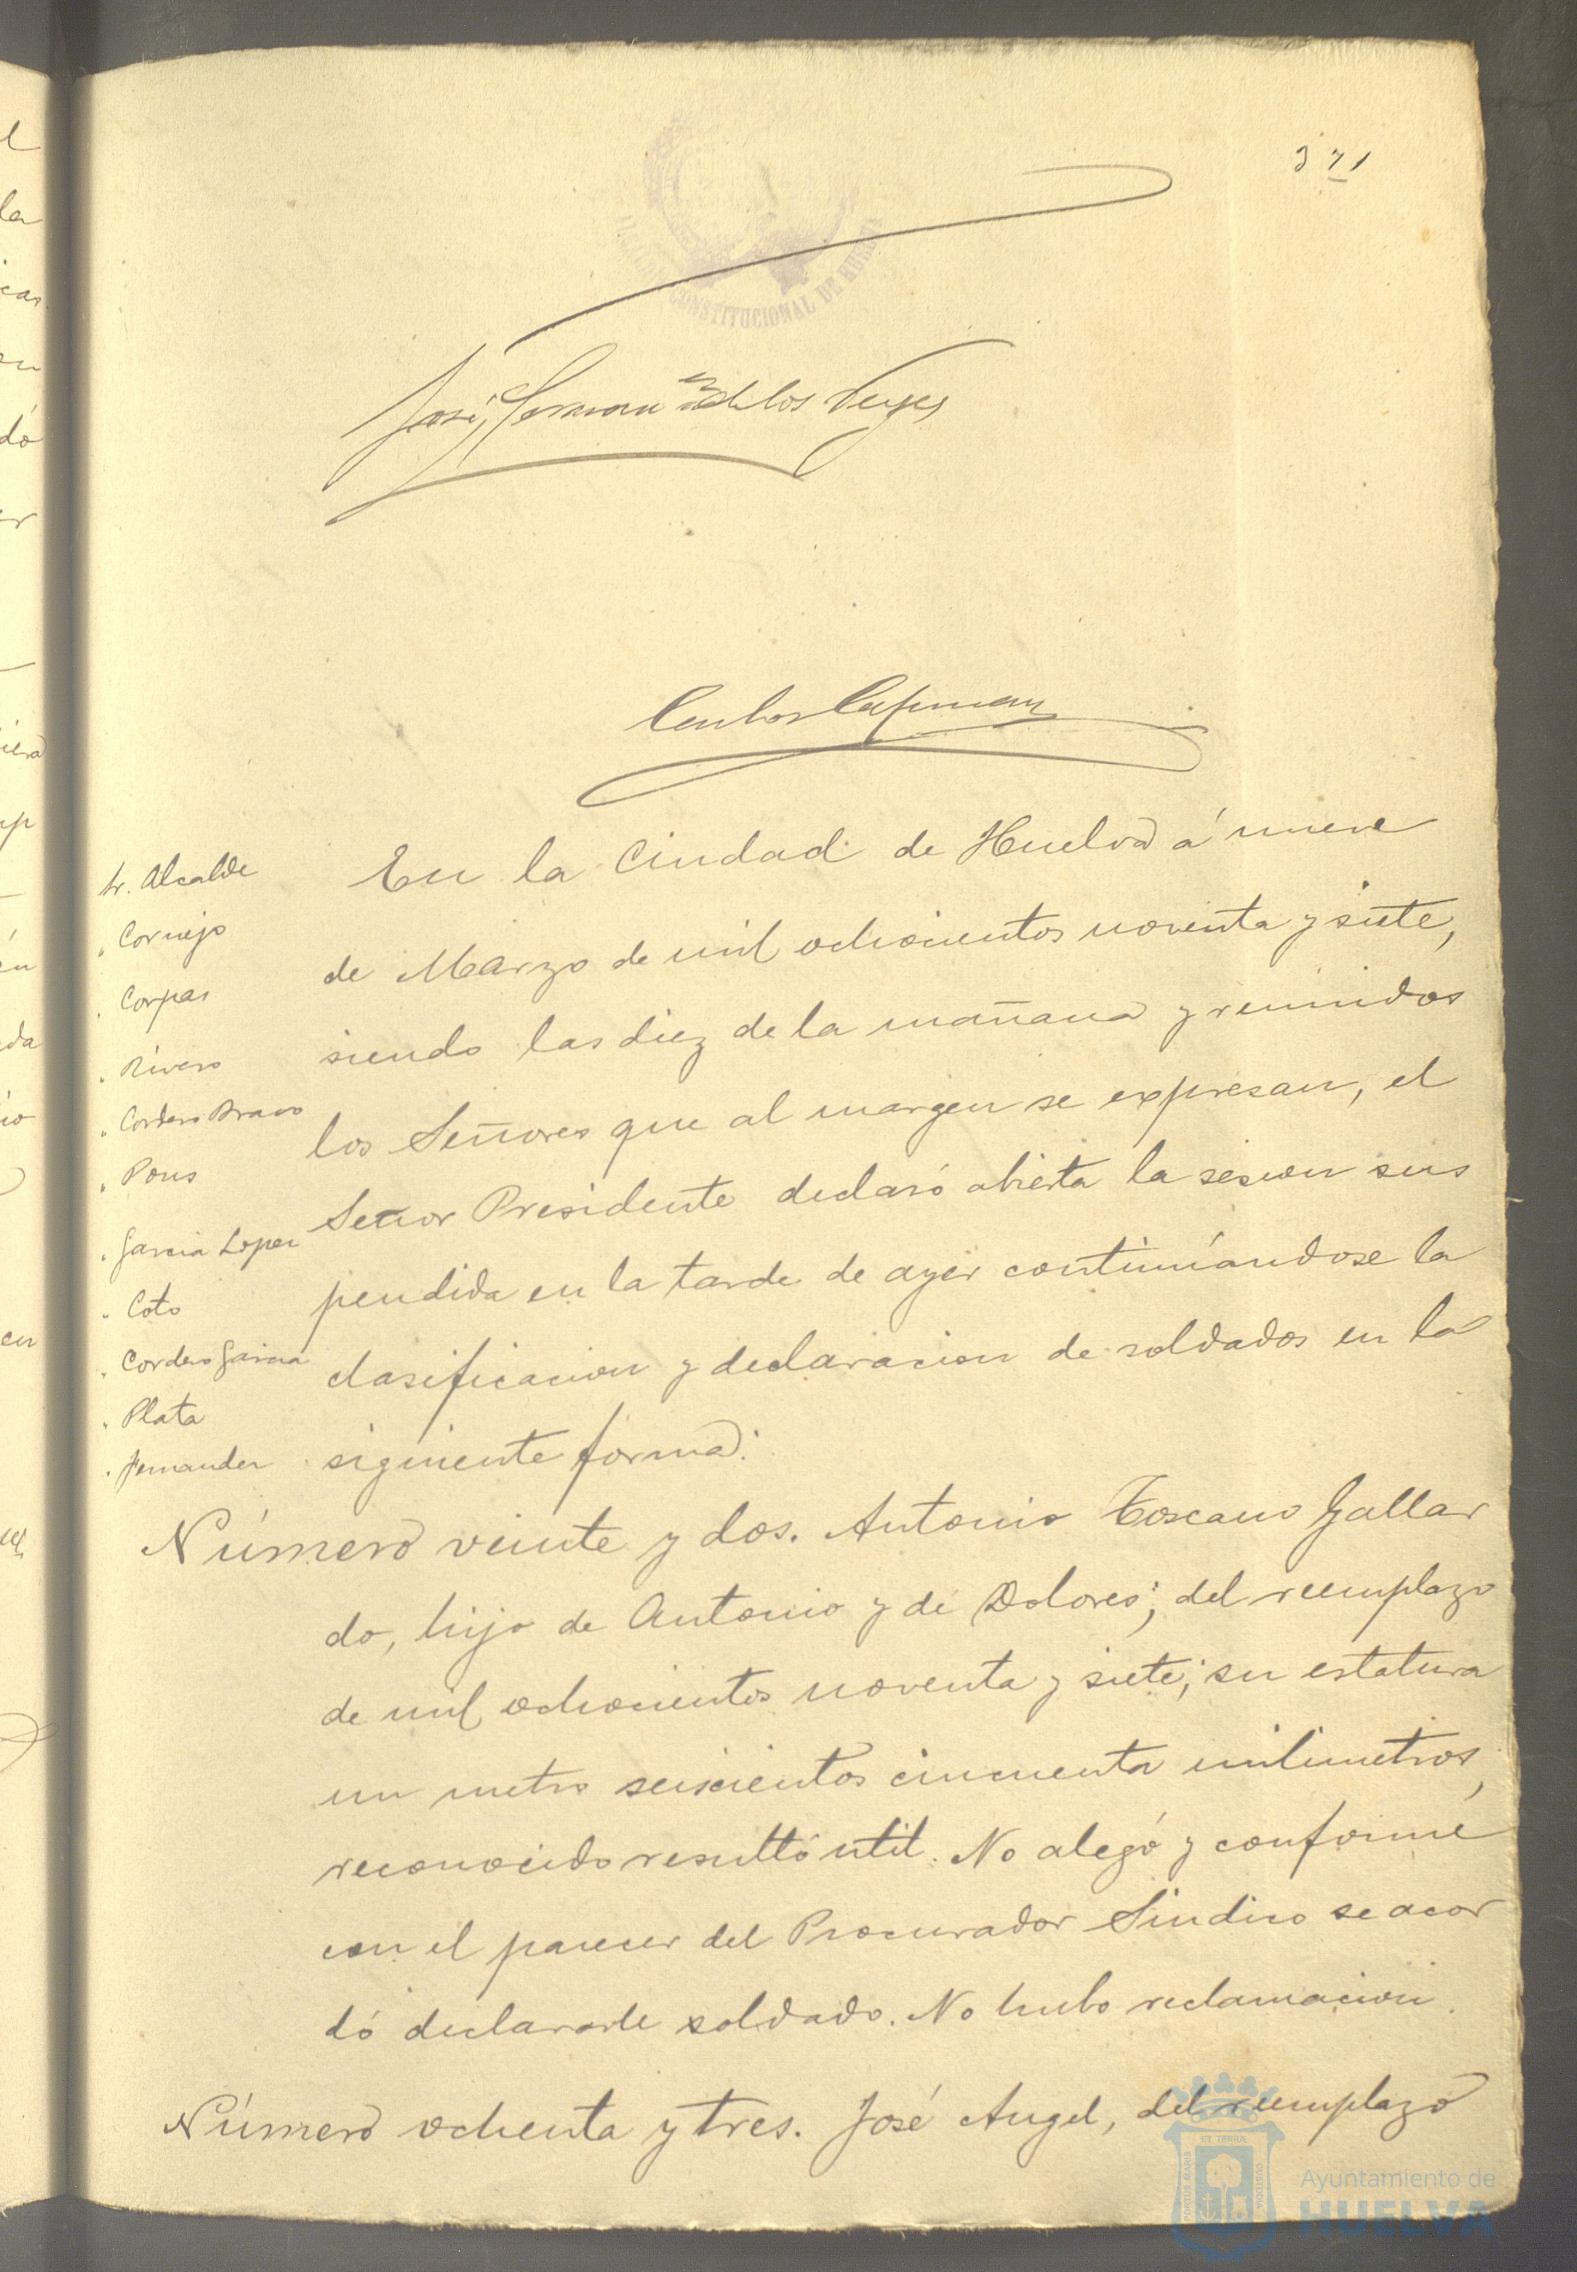 371
CONSTITUCIONAL DE HUELVA
José Fernandez de los Reyes
Carlos
Sr. Alcalde
" Cornejo
" Corpas
" Rivero
" Cordero Bravo
" Pons
" Garcia Lopez
" Coto
" Cordero Garcia
" Plata
" Fernandez
En la Ciudad de Huelva á nueve
de Marzo de mil ochocientos noventa y siete,
siendo las diez de la mañana y reunidos
los Señores que al margen se expresan, el
Señor Presidente declaró abierta la sesion sus
pendida en la tarde de ayer continúandose la
clasificacion y declaracion de soldados en la
siguiente forma:
Número veinte y dos. Antonio Toscano Gallar
do, hijo de Antonio y de Dolores; del reemplazo
de mil ochocientos noventa y siete; su estatura
un metro seiscientos cincuenta milimetros,
reconocido resultó util. No alegó y conforme
con el parecer del Procurador Sindico se acor
dó declararle soldado. No hubo reclamacion.
Número ochenta y tres. José Angel, del reemplazo
PORTUS MARIS ET TERRAE CUSTODIA
Ayuntamiento de
HUELVA